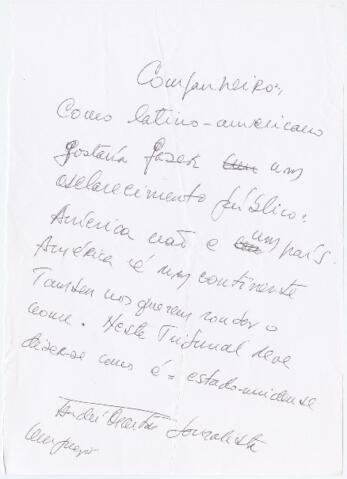 Companheiros,
Como latino-americano
gostaria fazer um
esclarecimento público:
América não e um país.
América é um continente
Tambem nos querem roubar o
nome. Neste Tribunal deve
dizerse como é = estado-unidense
André Journalista